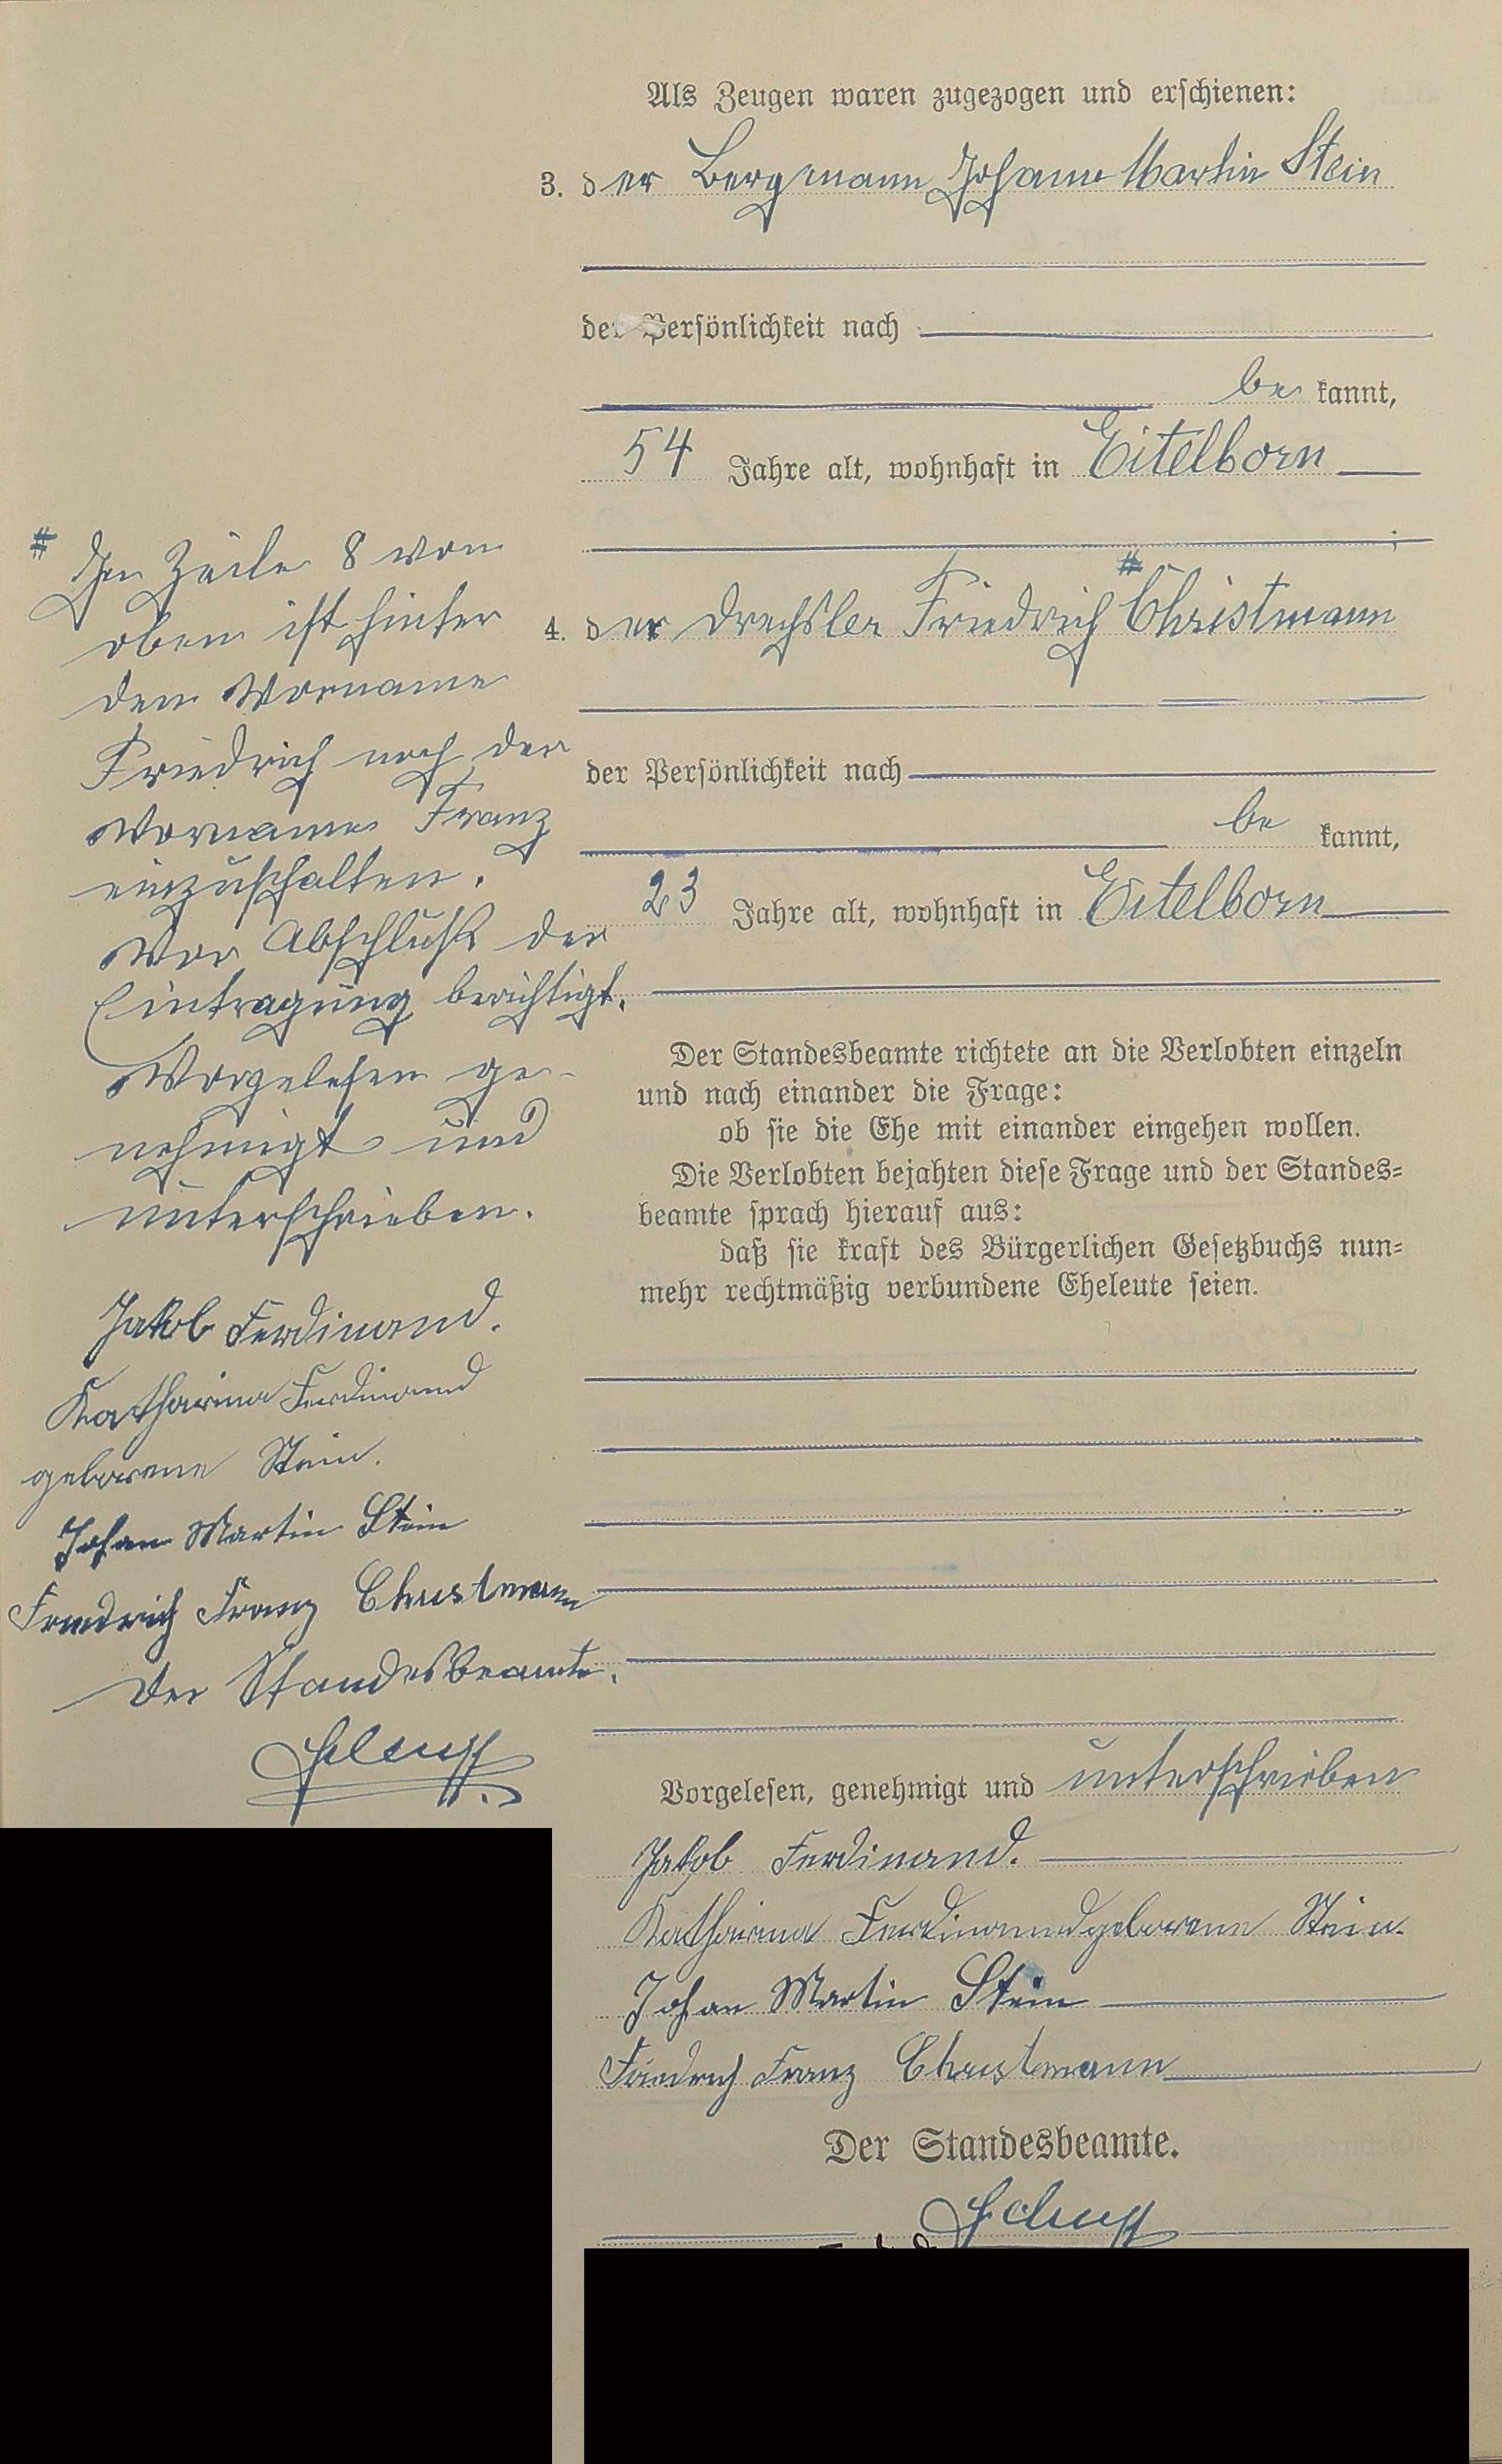 Als Zeugen waren zugezogen und erschienen:
3. der Bergmann Johann Martin Stein
der Persönlichkeit nach
be kannt,
54 Jahre alt, wohnhaft in Eitelborn
;
#
4. der Drechsler Friedrich Christmann
der Persönlichkeit nach
be kannt,
23 Jahre alt, wohnhaft in Eitelborn
# In Zeile 8 von
oben ist hinter
dem Vorname
Friedrich noch der
Vorname Franz
einzuschalten.
Vor Abschluß der
Eintragung berichtigt.
Vorgelesen ge-
nehmigt und
unterschrieben.
Jakob Ferdinand.
Katharina Ferdinand
geborene Stein.
Johan Martin Stein
Friedrich Franz Christmann
Der Standesbeamte.
Der Standesbeamte richtete an die Verlobten einzeln
und nach einander die Frage:
ob sie die Ehe mit einander eingehen wollen.
Die Verlobten bejahten diese Frage und der Standes=
beamte sprach hierauf aus:
daß sie kraft des Bürgerlichen Gesetzbuchs nun=
mehr rechtmäßig verbundene Eheleute seien.
Vorgelesen, genehmigt und unterschrieben
Jakob Ferdinand.
Katharina Ferdinand geborene Stein.
Johan Martin Stein
Friedrich Franz Christmann
Der Standesbeamte.